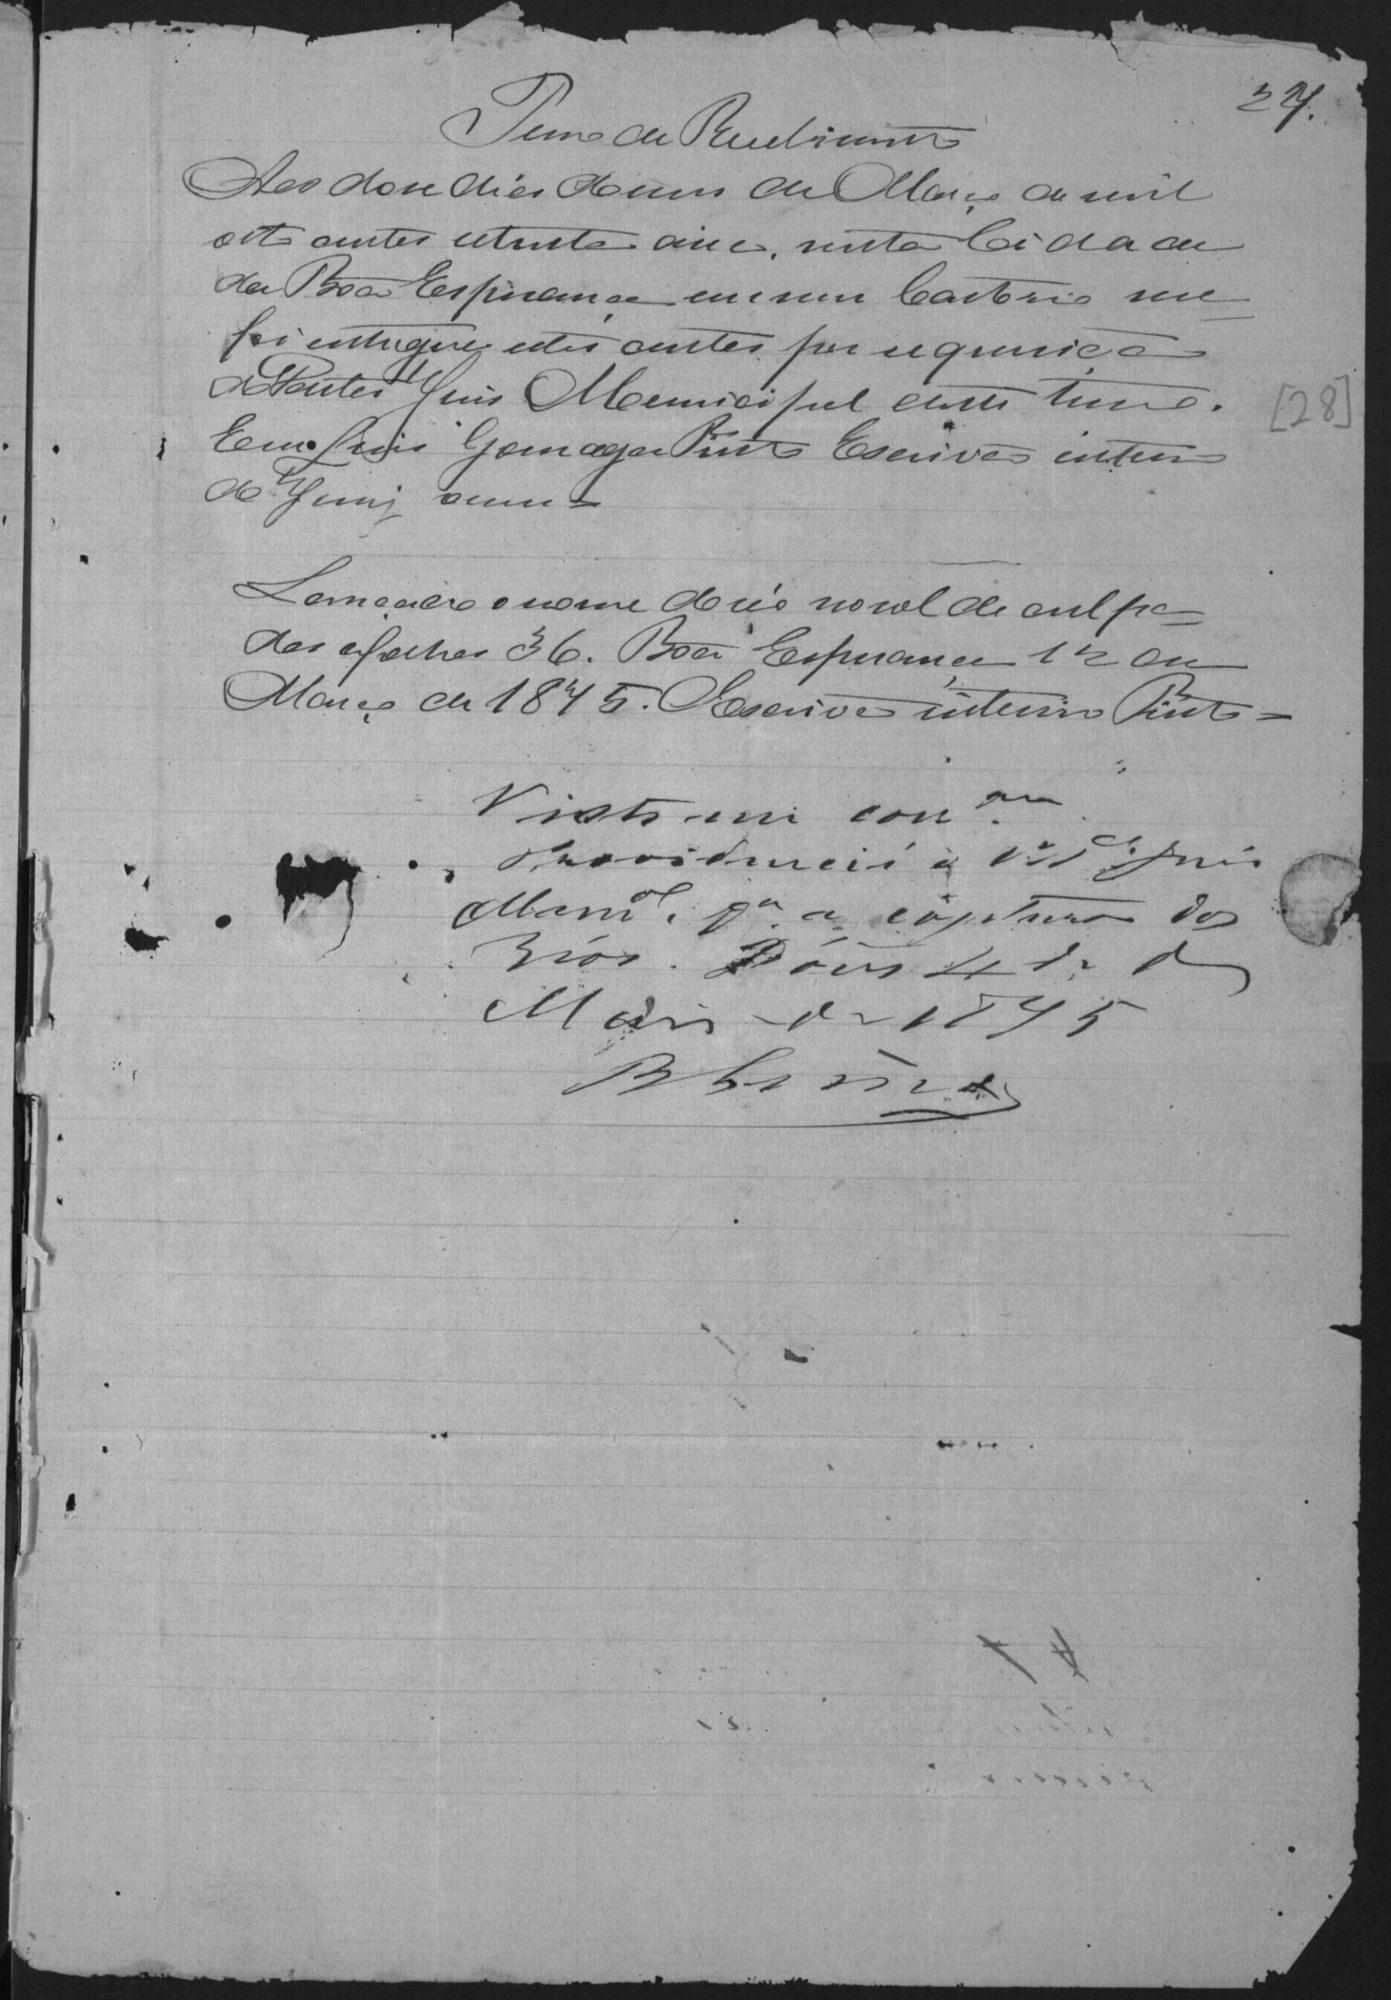 27.
Termo de Recebimento
Aos dose dias do mes de Março de mil
oito centos e trinta cinco, nesta Cidade
da Boa Esperança em meu Cartorio me
foi entregue estes autos por
Juis Municipal deste termo.
Eu Luis Gonzaga Pinto Escrivão interino
do Jury
[28]
Lançado o nome do réo no rol de culpa=
dos a folhas 36. Boa Esperança 12 de
Março de 1875. O Escrivão interino Pinto=
Visto em cor.am
Providencie o Juis
Mun.al p.a a captura dos
Réos. Dôres 4 de
Maio de 1875